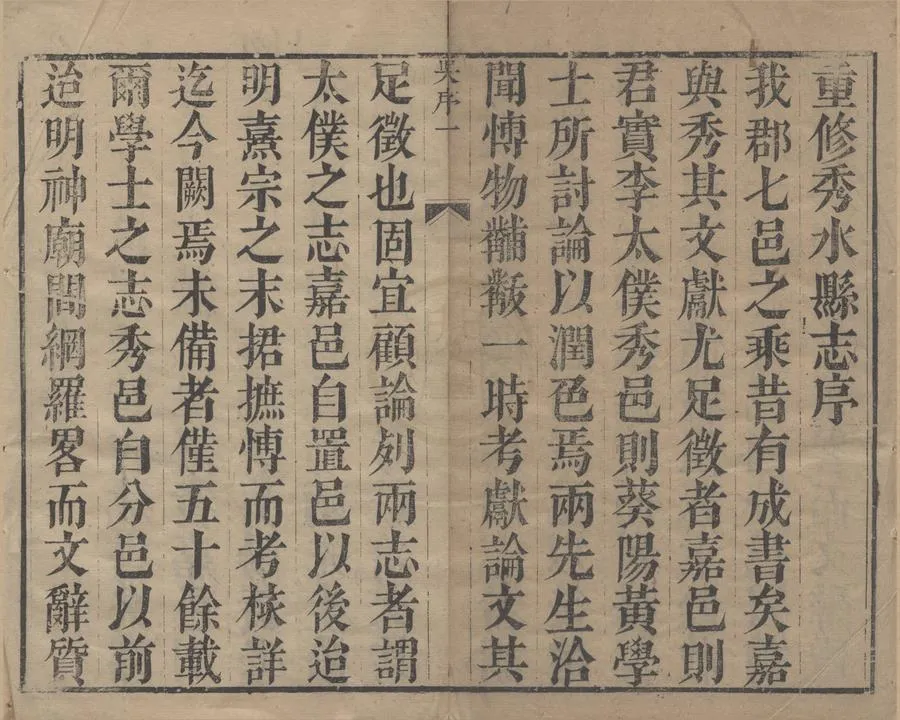 重修秀水縣志序
我郡七邑之乘昔有成書矣嘉
與秀其文獻尤足徵者嘉邑則
君實李太僕秀邑則葵陽黃學
士所討論以潤色焉兩先生洽
聞愽物黼黻一時考獻論文其
吳序一
足徵也固宜顧論列兩志者謂
太僕之志嘉邑自置邑以後迨
明熹宗之末捃摭愽而考核詳
迄今闕焉未備者僅五十餘載
爾學士之志秀邑自分邑以前
迨明神廟間網羅畧而文辭質